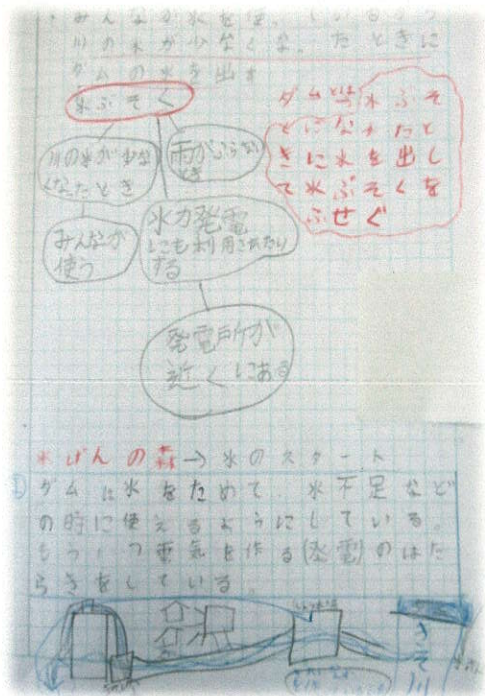 みんなが水を使っているから
川の水が少なくなったときに
ダムの水を出す
水ぶそく
川の水が少な
くなったとき
雨がふらない
とき
みんなが
使う
水力発電
にも利用されたり
する
発電所が
近くにある
ダムとは水ぶそ
くになったと
きに水を出し
て水ぶそくを
ふせぐ
水げんの森→水のスタート
ダムは水をためて、水不足など
の時に使えるようにしている。
もう1つ電気を作る(発電)のはた
らきをしている。
きそ川